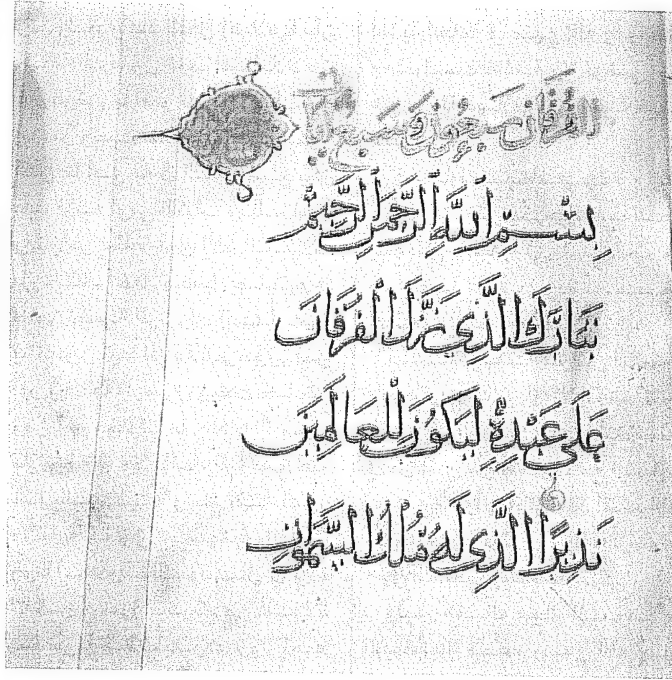 الفرقان سبعون وسبع آيات
بِسْمِ اللَّهِ الرَّحْمَنِ الرَّحِيمِ
تَبَارَكَ الَّذِي نَزَّلَ الْفُرْقَانَ
عَلَى عَبْدِهِ لِيَكُونَ لِلْعَالَمِينَ
نَذِيرًا الَّذِي لَهُ مُلْكُ السَّمَوَاتِ